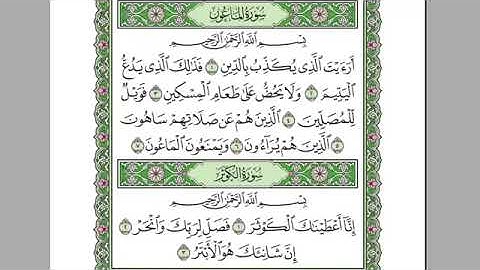 سُورَةُ المَاعُونِ
بِسْمِ اللَّهِ الرَّحْمَٰنِ الرَّحِيمِ
أَرَءَيْتَ الَّذِي يُكَذِّبُ بِالدِّينِ ١ فَذَٰلِكَ الَّذِي يَدُعُّ
الْيَتِيمَ ٢ وَلَا يَحُضُّ عَلَىٰ طَعَامِ الْمِسْكِينِ ٣ فَوَيْلٌ
لِّلْمُصَلِّينَ ٤ الَّذِينَ هُمْ عَن صَلَاتِهِمْ سَاهُونَ
٥ الَّذِينَ هُمْ يُرَاءُونَ ٦ وَيَمْنَعُونَ الْمَاعُونَ ٧
سُورَةُ الكَوْثَرِ
بِسْمِ اللَّهِ الرَّحْمَٰنِ الرَّحِيمِ
إِنَّا أَعْطَيْنَاكَ الْكَوْثَرَ ١ فَصَلِّ لِرَبِّكَ وَانْحَرْ ٢
إِنَّ شَانِئَكَ هُوَ الْأَبْتَرُ ٣